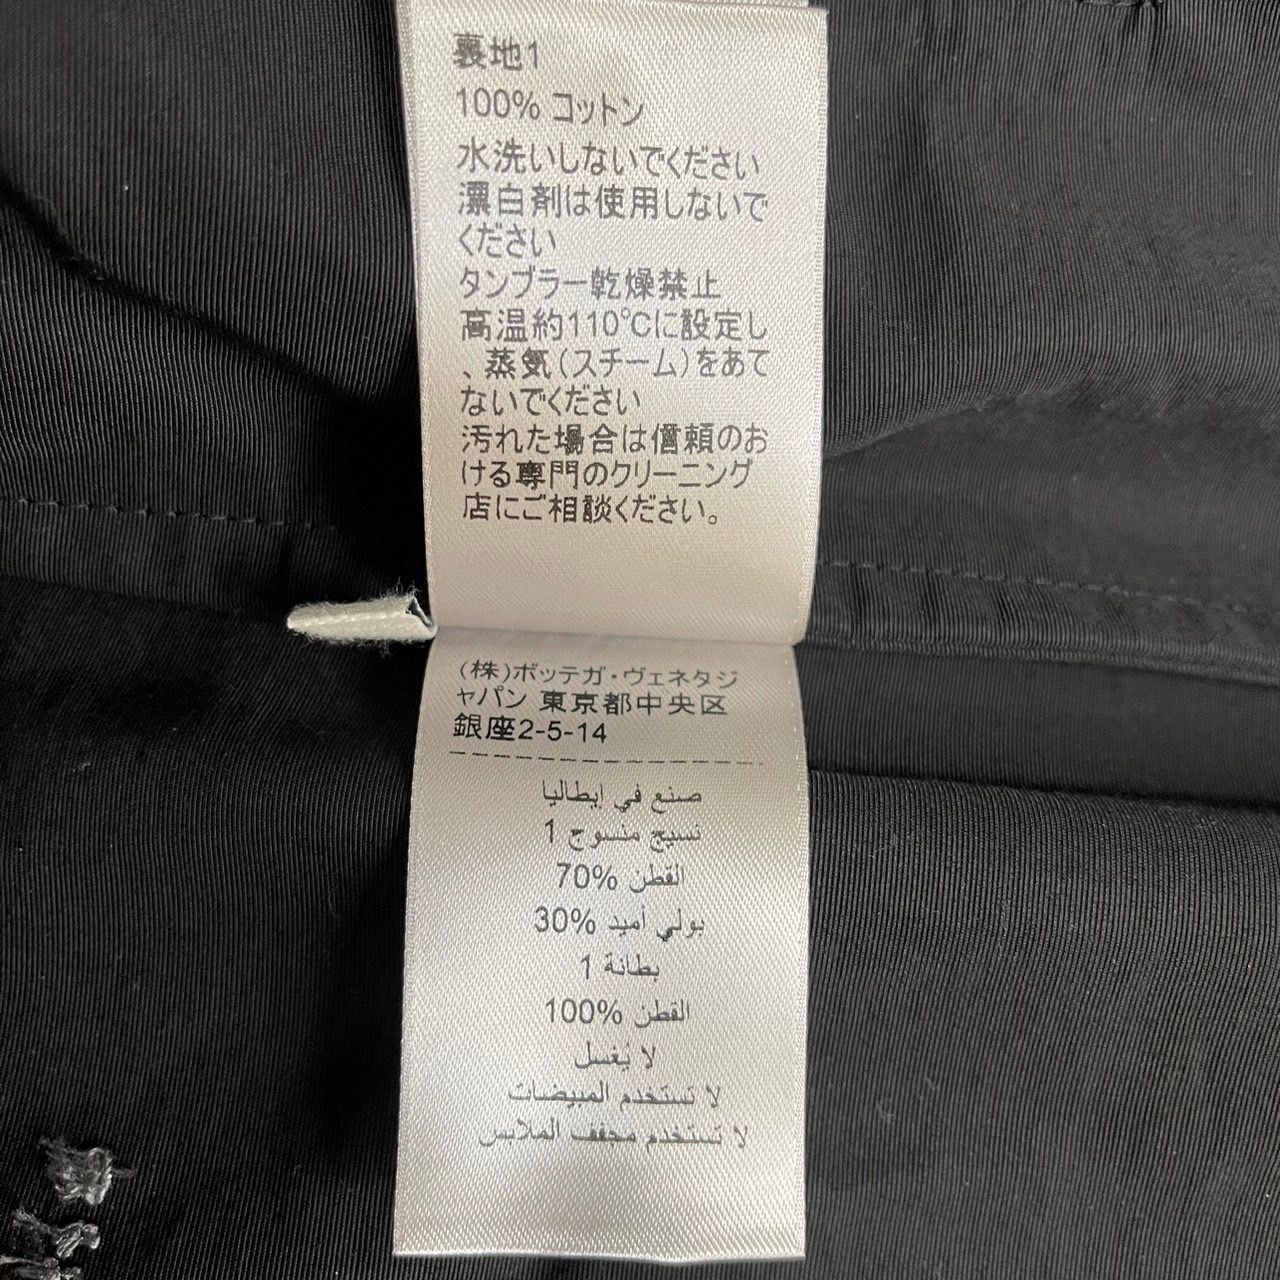 裏地1
100% コットン
水洗いしないでください
漂白剤は使用しないで
ください
タンブラー乾燥禁止
高温約110℃に設定し
、蒸気(スチーム)をあて
ないでください
汚れた場合は信頼のお
ける専門のクリーニング
店にご相談ください。
(株)ボッテガ・ヴェネタジ
ャパン 東京都中央区
銀座2-5-14
صنع في إيطاليا
نسيج منسوج 1
القطن 70%
بولي أميد 30%
بطانة 1
القطن 100%
لا يُغسل
لا تستخدم المبيضات
لا تستخدم مجفف الملابس